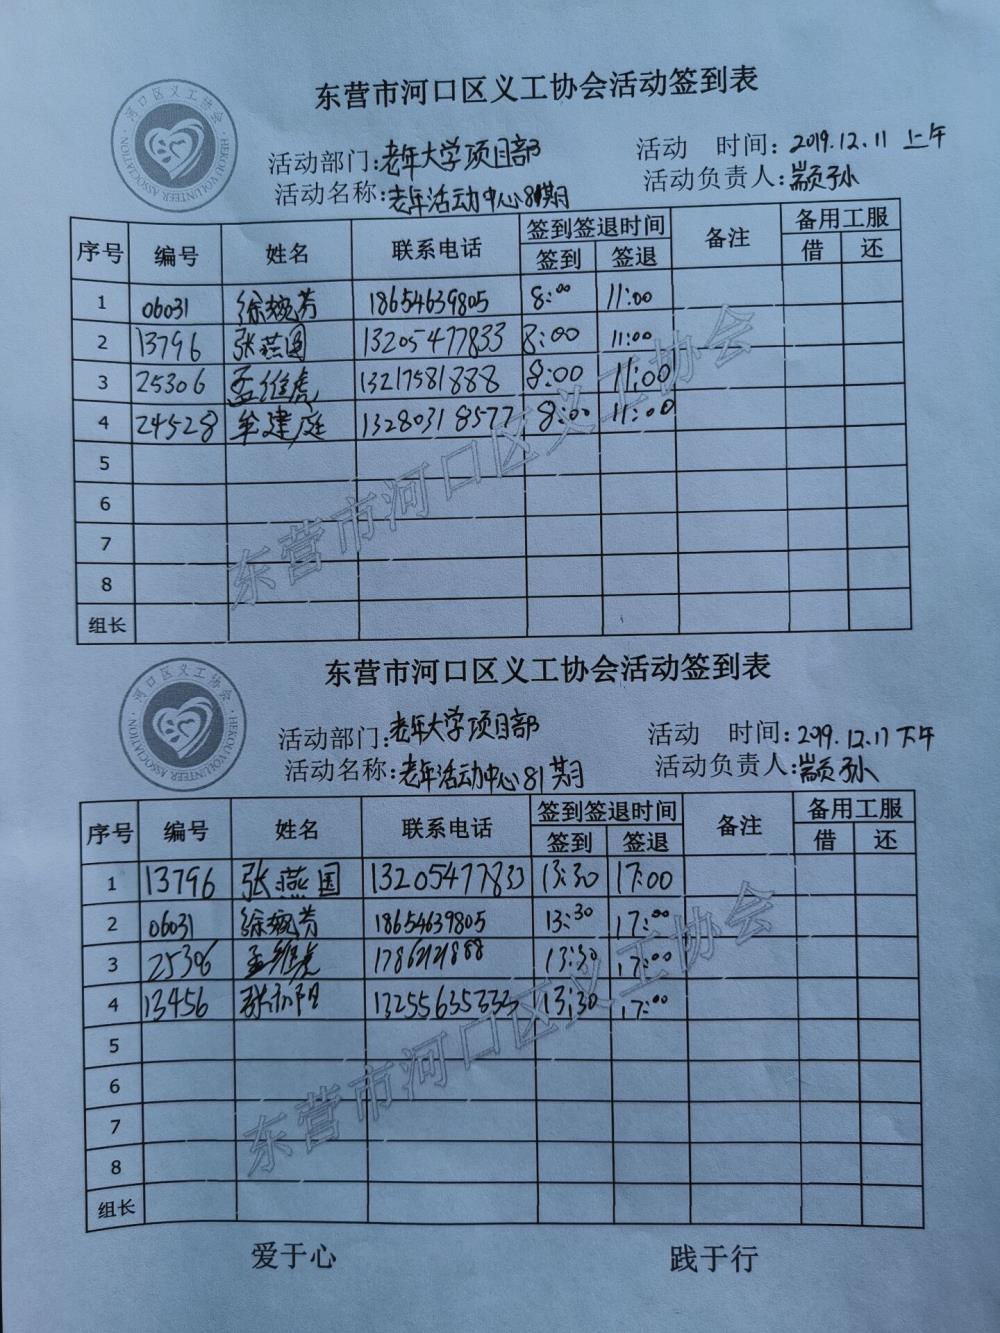 东营市河口区义工协会活动签到表
河口区义工协会
HEKOU VOLUNTEER ASSOCIATION
活动部门:老年大学项目部 活动 时间:2019.12.11 上午
活动名称:老年活动中心81期 活动负责人:颛孙
序号 编号 姓名 联系电话 签到签退时间 备注 备用工服
签到 签退 借 还
1 06031 徐婉芳 18654639805 8:00 11:00
2 13796 张燕国 13205477833 8:00 11:00
3 25306 孟维虎 13217581888 8:00 11:00
4 24528 牟建庭 13280318577 8:00 11:00
5
6
7
8
组长
东营市河口区义工协会
东营市河口区义工协会活动签到表
河口区义工协会
HEKOU VOLUNTEER ASSOCIATION
活动部门:老年大学项目部 活动 时间:2019.12.11下午
活动名称:老年活动中心81期 活动负责人:颛孙
序号 编号 姓名 联系电话 签到签退时间 备注 备用工服
签到 签退 借 还
1 13796 张燕国 13205477833 13:30 17:00
2 06031 徐婉芳 18654639805 13:30 17:00
3 25306 孟维虎 13:30 17:00
4 13456 13255635333 13:30 17:00
5
6
7
8
组长
东营市河口区义工协会
爱于心 践于行